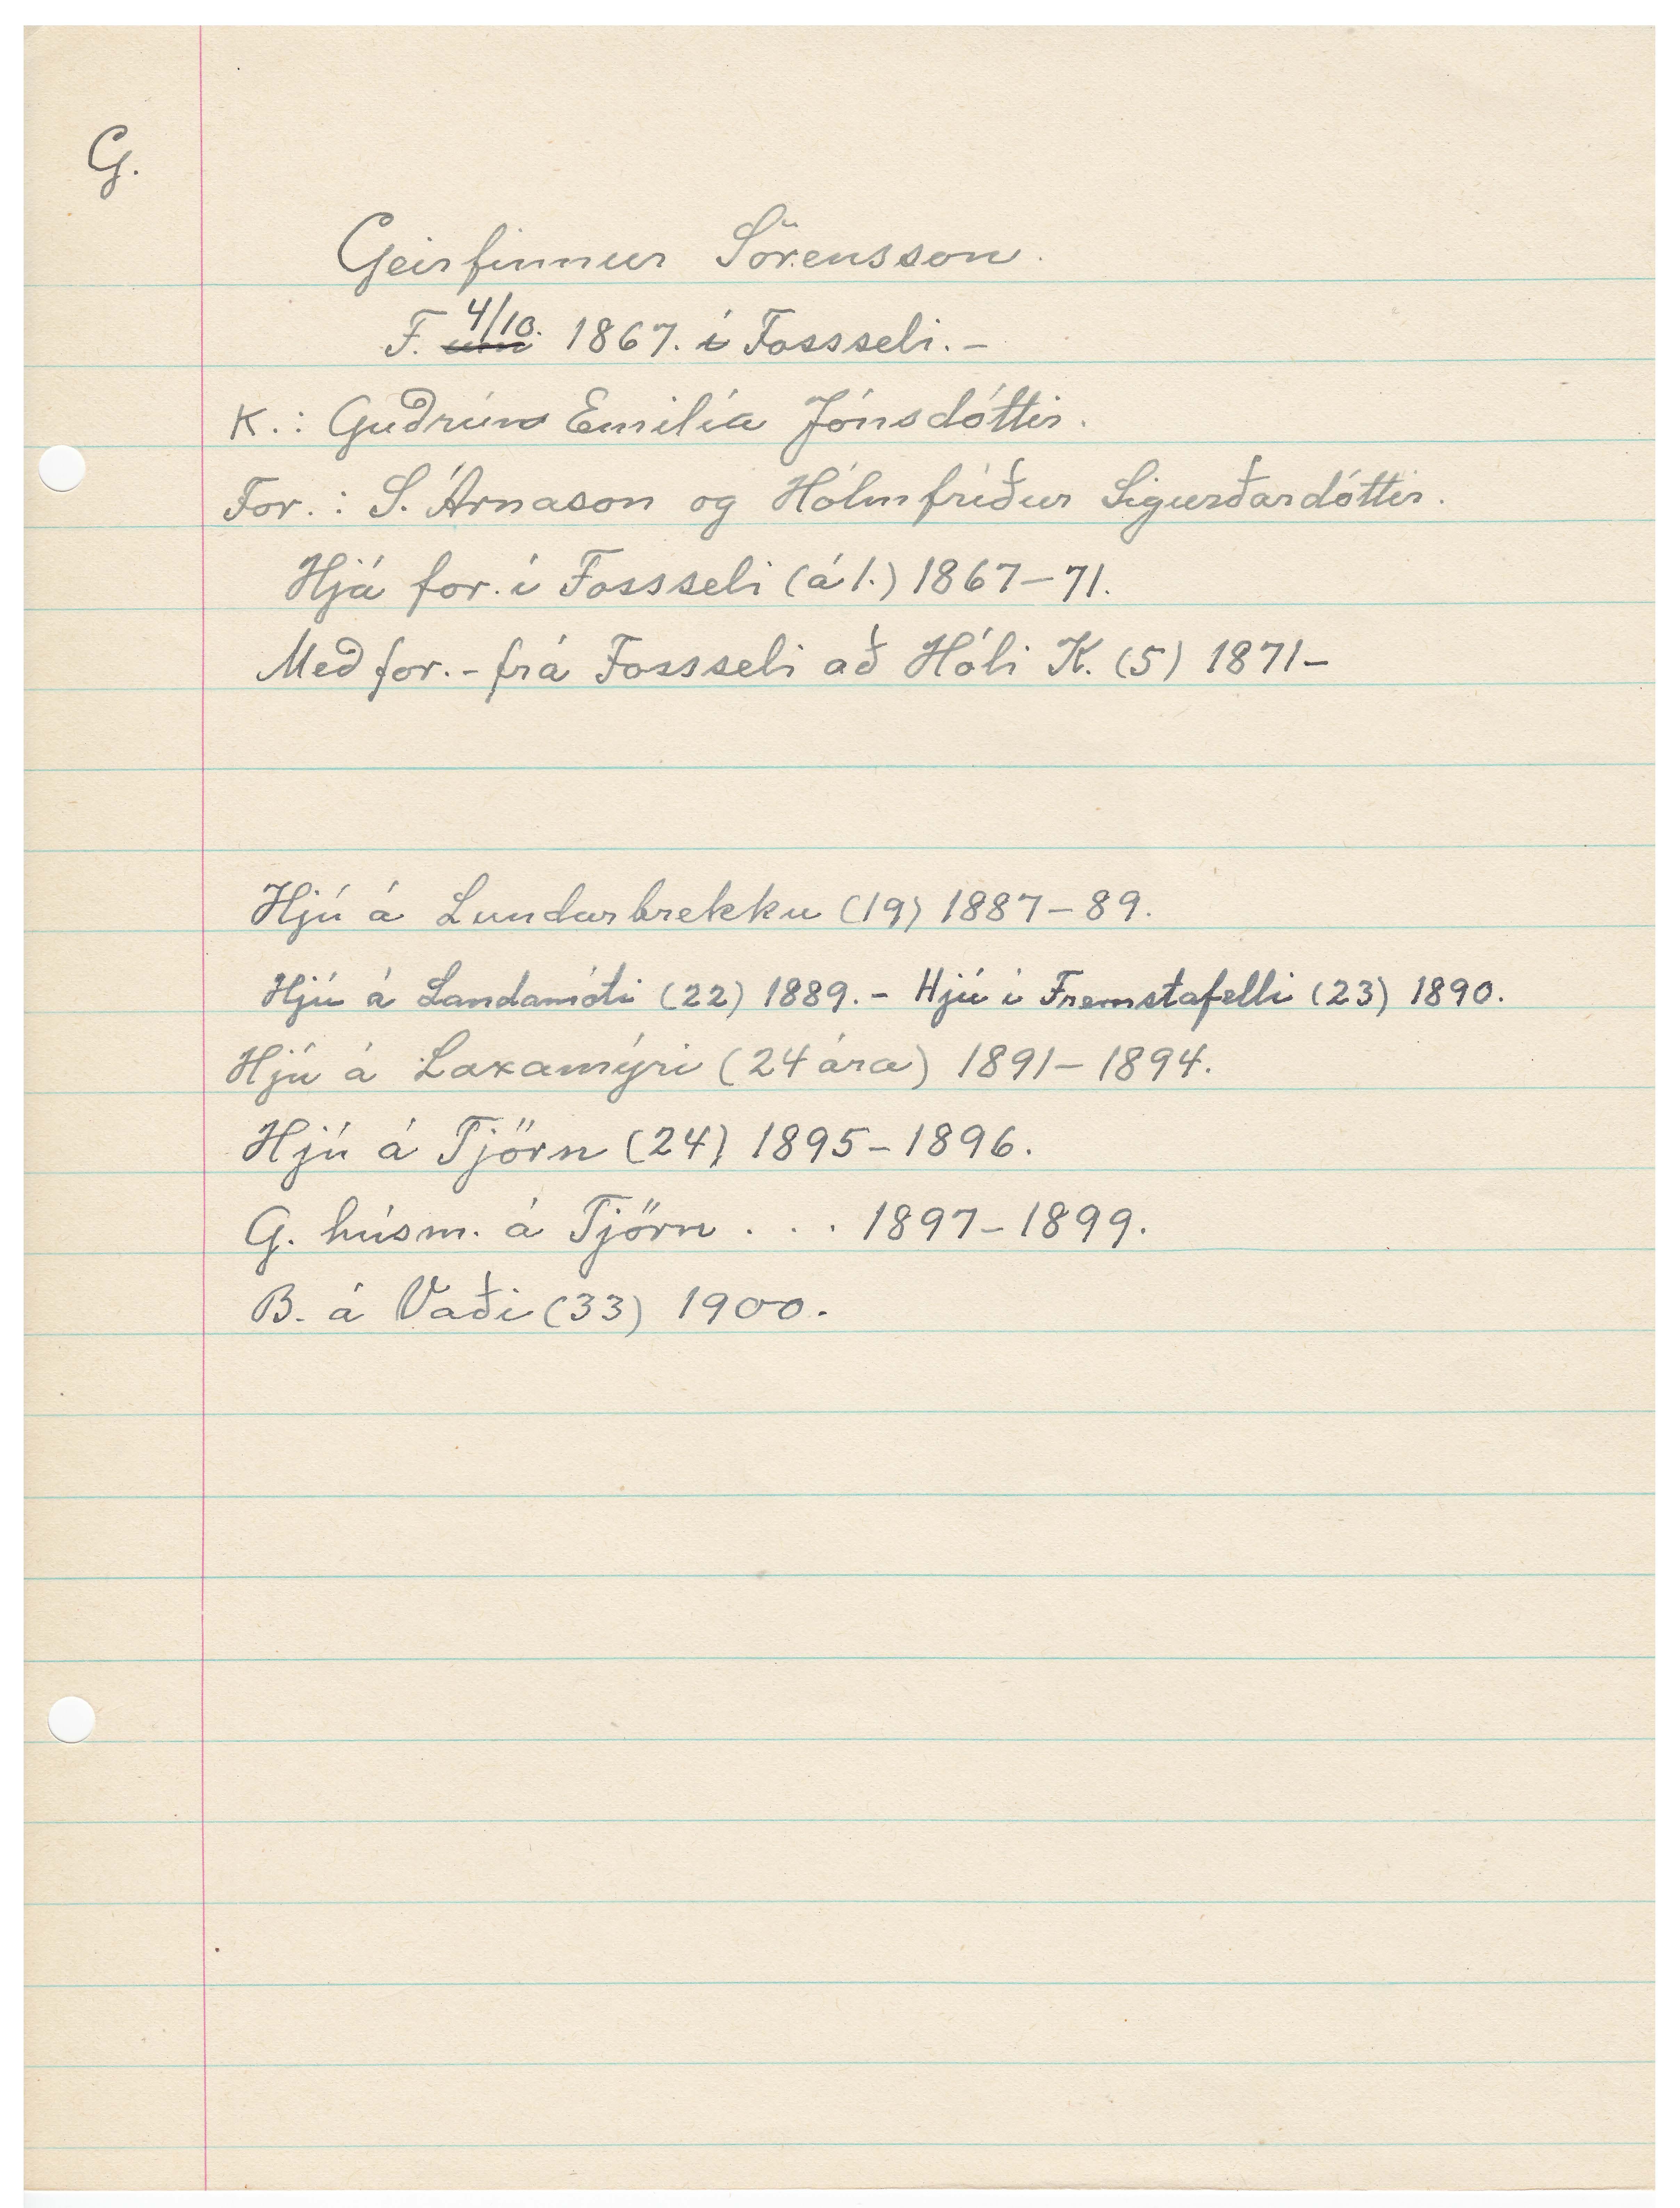 G.
Geirfinnur Sörensson.
F. 4/10. 1867. í Fossseli. -
K.: Guðrún Emilía Jónsdóttir.
For.: S. Árnason og Hólmfríður Sigurðardóttir.
Hjá for. í Fossseli (á 1.) 1867-71.
Með for. - frá Fossseli að Hóli K. (5) 1871-
Hjú á Lundarbrekku (19) 1887-89.
Hjú á Landamóti (22) 1889. - Hjú í Fremstafelli (23) 1890.
Hjú á Laxamýri (24 ára) 1891-1894.
Hjú á Tjörn (24) 1895-1896.
G. húsm. á Tjörn . . . 1897-1899.
B. á Vaði (33) 1900.